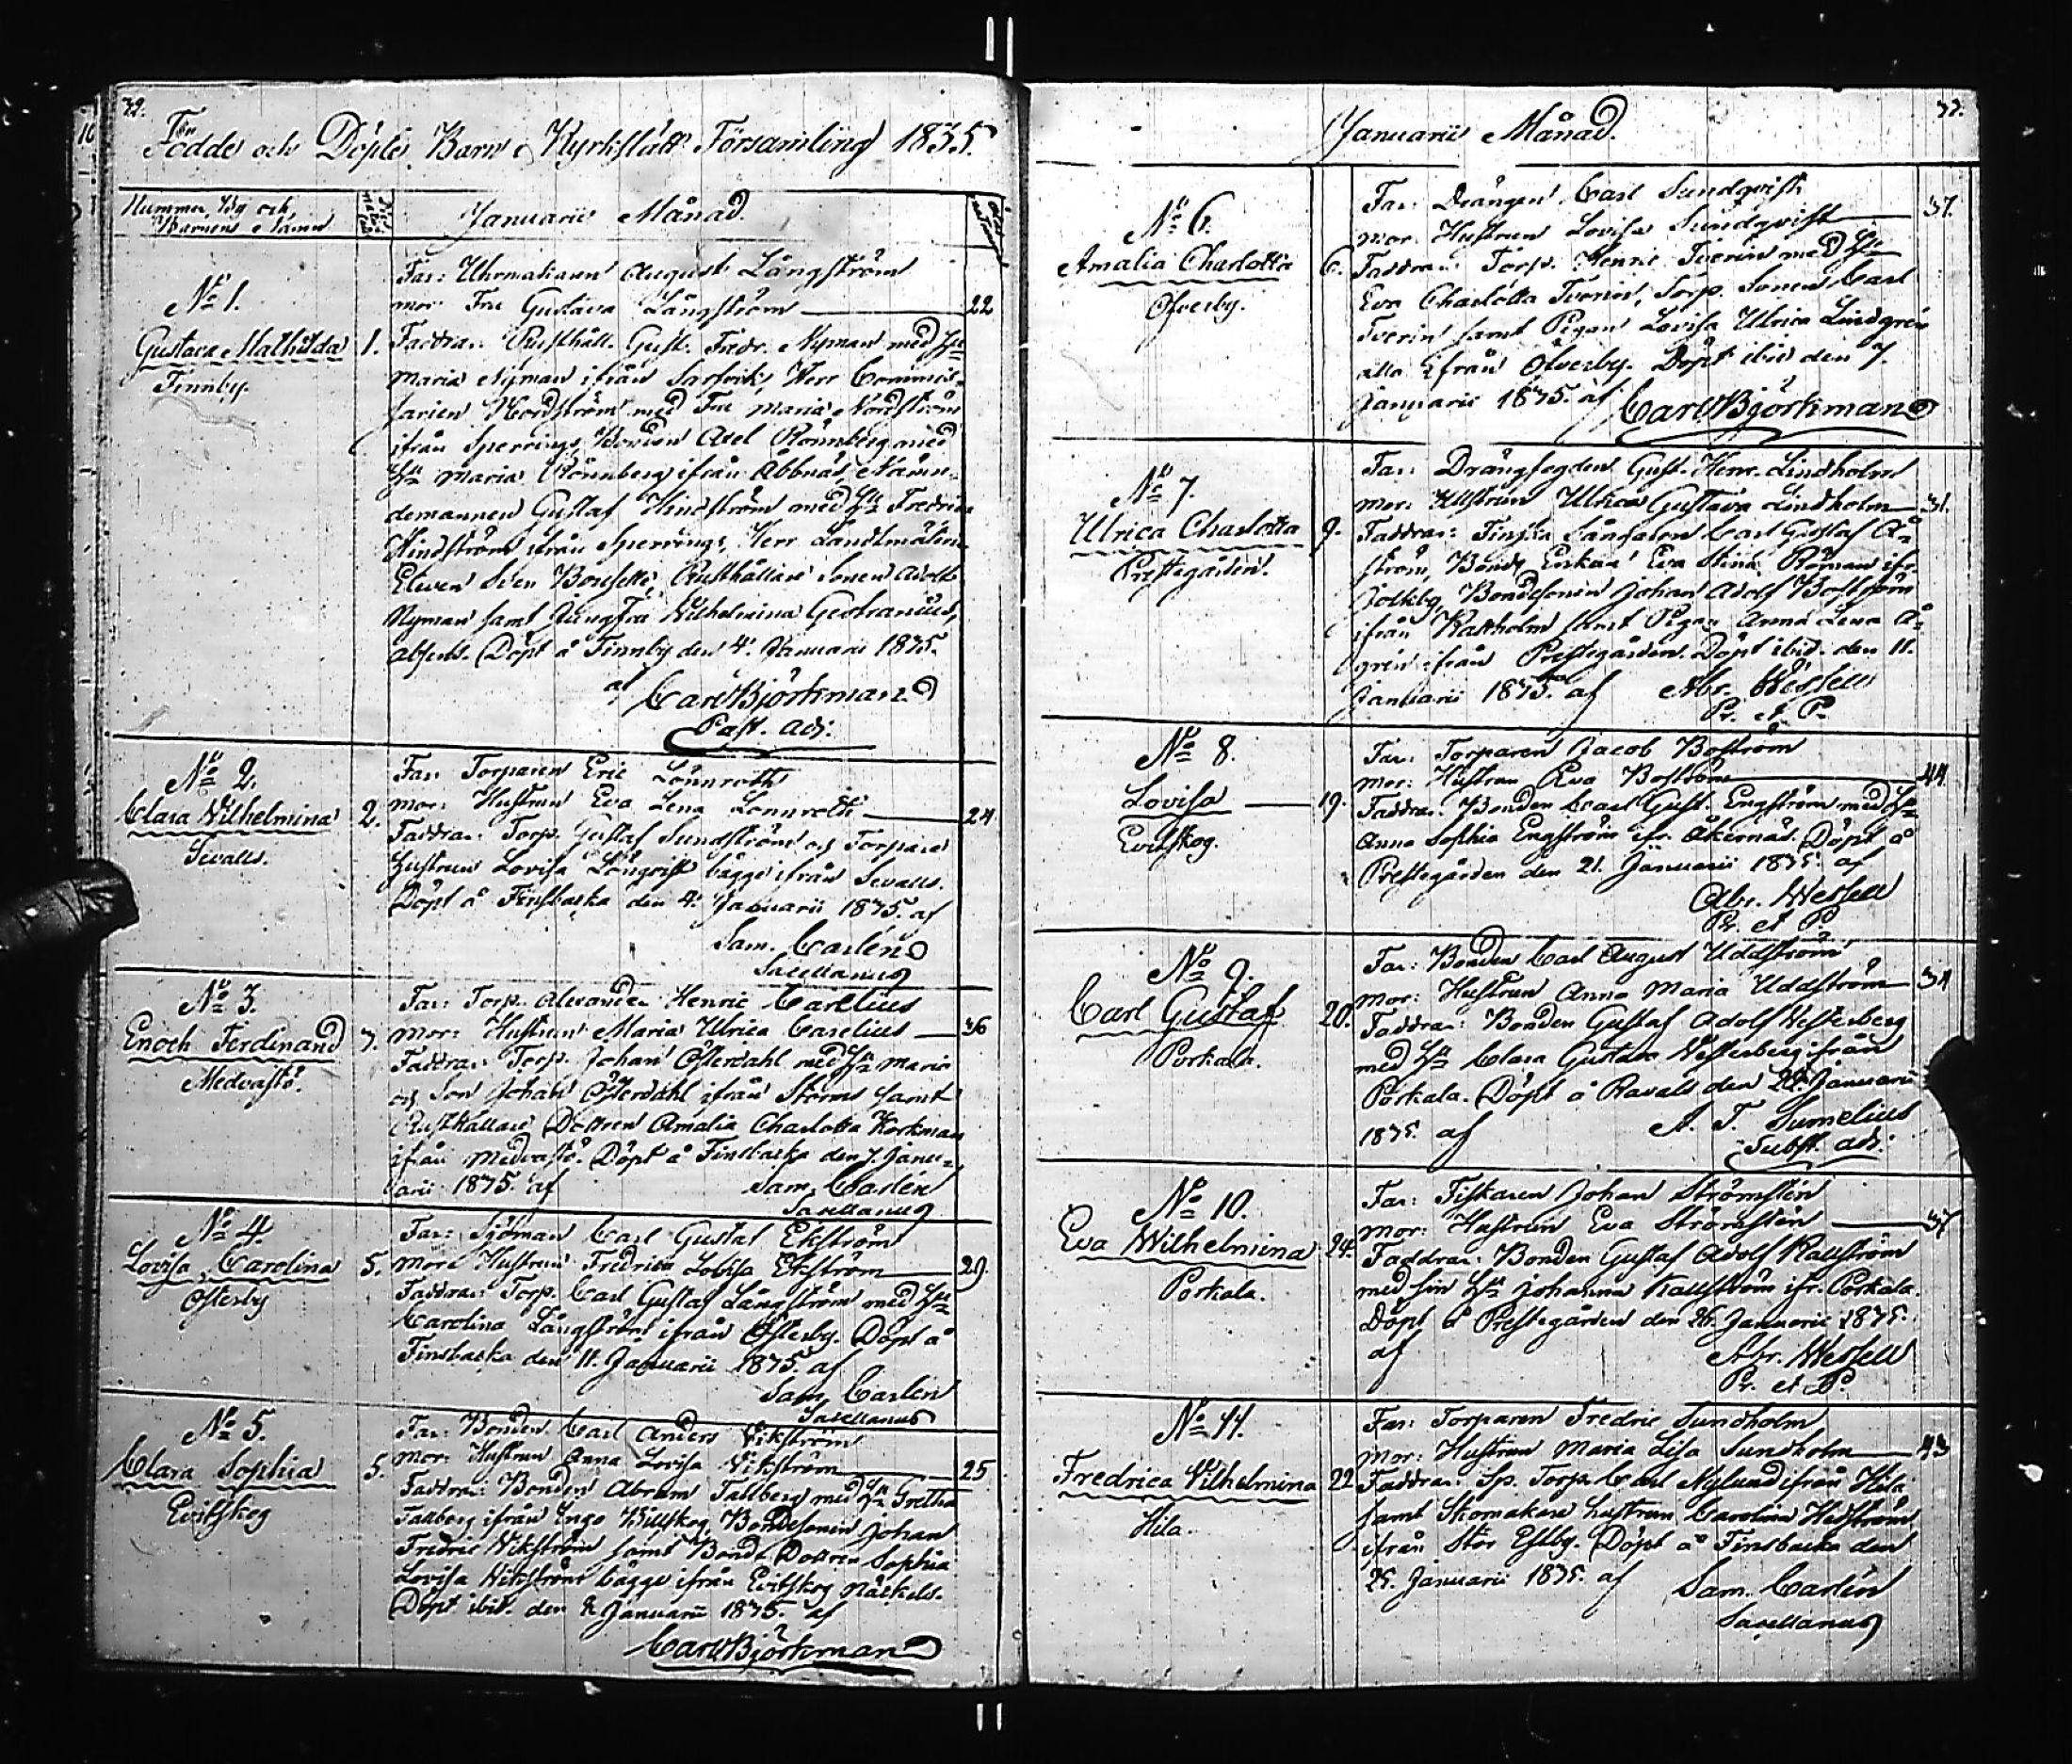 32.
Födde och Döpte Barn i Kyrkslätt Församling 1835.
Nummer, By och
Barnens Namn
Januarii Månad.
No 1.
Gustava Mathilda 1.
Finnby.
Far: Uhrmakaren August Långström
mor Fru Gustava Långström 22
Faddrar: Rusthåll. Gust. Fredr. Nyman med Hu
Maria Nyman ifrån Sarfvik, Herr Commis-
sarien Nordström med Fru Maria Nordström
ifrån Sperrings, Bonden Axel Rönnberg med
Hu Maria Rönnberg ifrån Åbbnäs, Nämn-
demannen Gustaf Hindström med Hu Fredrica
Hindström ifrån Sperrings, Herr Landtmäteri
Eleven Sven, Rusthållare Sonen Adolf
Nyman samt Jungfru Wilhelmina
absens. Döpt å Finnby den 4. Januarii 1835.
af Carl Björkman
Past. adj:
No 2.
Clara Wilhelmina 2.
Sevalls.
Far: Torparen Eric Lönnroth
mor: Hustrun Eva Lena Lönnroth 24
Faddrar: Torp. Gustaf Sundström och Torpare
hustrun Lovisa Lönqvist bägge ifrån Sevalls.
Döpt å Finsbacka den 4. Januarii 1835. af
Sam. Carlén
Sacellanus
No 3.
Enoch Ferdinand 3.
Medvastö.
Far: Torp. Alexander Henric Carelius
mor: Hustrun Maria Ulrica Carelius 36
Faddrar: Torp. Johan Österdahl med Hu Maria
och Son Johan Österdahl ifrån Störms samt
Rusthållare Dottren Amalia Charlotta Korkman
ifrån Medvastö. Döpt å Finsbacka den 7. Janu-
arii 1835. af Sam. Carlén
Sacellanus
No 4.
Lovisa Carolina 5.
Österby
Far: Sjöman Carl Gustaf Ekström
mor: Hustrun Fredrica Lovisa Ekström 29
Faddrar: Torp. Carl Gustaf Långström med Hu
Carolina Långström ifrån Österby. Döpt å
Finsbacka den 11. Januarii 1835. af
Sam. Carlén
Sacellanus
No 5.
Clara Sophia 5.
Evitskog
Far: Bonden Carl Anders Vikström
mor: Hustrun Anna Lovisa Vikström 25
Faddrar: Bonden Abram Tallberg med Hu Gretha
Tallberg ifrån Ingo Billskog, Bondesonen Johan
Fredric Wikström samt Bonde Dottren Sophia
Lovisa Wikström bägge ifrån Evitskog
Döpt ibid. den 8 Januarii 1835. af
Carl Björkman
33.
Januarii Månad.
No 6.
Amalia Charlotta 6.
Öfverby.
Far: Drängen Carl Sundqvist
mor: Hustrun Lovisa Sundqvist 37.
Faddrar: Torp. Henric Tverin med Hu
Eva Charlotta Tverin, Torp. Sonen Carl
Tverin samt Pigan Lovisa Ulrica Lindgrén
alla ifrån Öfverby. Döpt ibid. den 7.
Januarii 1835. af Carl Björkman
No 7.
Ulrica Charlotta 9.
Prestegården.
Far: Drängfogden Gust. Henr. Lindholm
mor: Hustrun Ulrica Gustava Lindholm 31.
Faddrar: Finska Carl Gustaf Å-
ström, Bonde Enkan Eva Stina Röman ifr.
Jolkby, Bondesonen Johan Adolf Boström
ifrån samt Pigan Anna Lena Å-
grén ifrån Prestegården. Döpt ibid. den 11.
Januarii 1835. af Abr. Wessell
Pr. et P.
No 8.
Lovisa 19.
Evitskog.
Far: Torparen Jacob Boström
mor: Hustrun Eva Boström 44
Faddrar: Bonden Carl Gust. Engström med Hu
Anna Sophia Engström ifr. Åkernäs. Döpt å
Prestegården den 21. Januarii 1835. af
Abr. Wessell
Pr. et P.
No 9.
Carl Gustaf 20.
Porkala.
Far: Bonden Carl August Uddström
mor: Hustrun Anna Maria Uddström 34
Faddrar: Bonden Gustaf Adolf Westerberg
med Hu Clara Gustava Westerberg ifrån
Porkala. Döpt å Ravals den 22 Januarii
1835. af A. T. Sumelius
Subst. adj:
No 10.
Eva Wilhelmina 24.
Porkala.
Far: Fiskaren Johan Strömstén
mor: Hustrun Eva Strömstén 37
Faddrar: Bonden Gustaf Adolf Kallström
med sin Hu Johanna Kallström ifr. Porkala.
Döpt å Prestegården den 26. Januarii 1835.
af Abr. Wessell
Pr. et P.
No 11.
Fredrica Wilhelmina 22
Hila.
Far: Torparen Fredric Sundholm
mor: Hustrun Maria Lisa Sundholm 43
Faddrar: Sp. Torp. Carl Nylund ifrån Hila
samt Skomakare hustrun Carolina Hedström
ifrån Stor Esbby. Döpt å Finsbacka den
25. Januarii 1835. af Sam. Carlén
Sacellanus